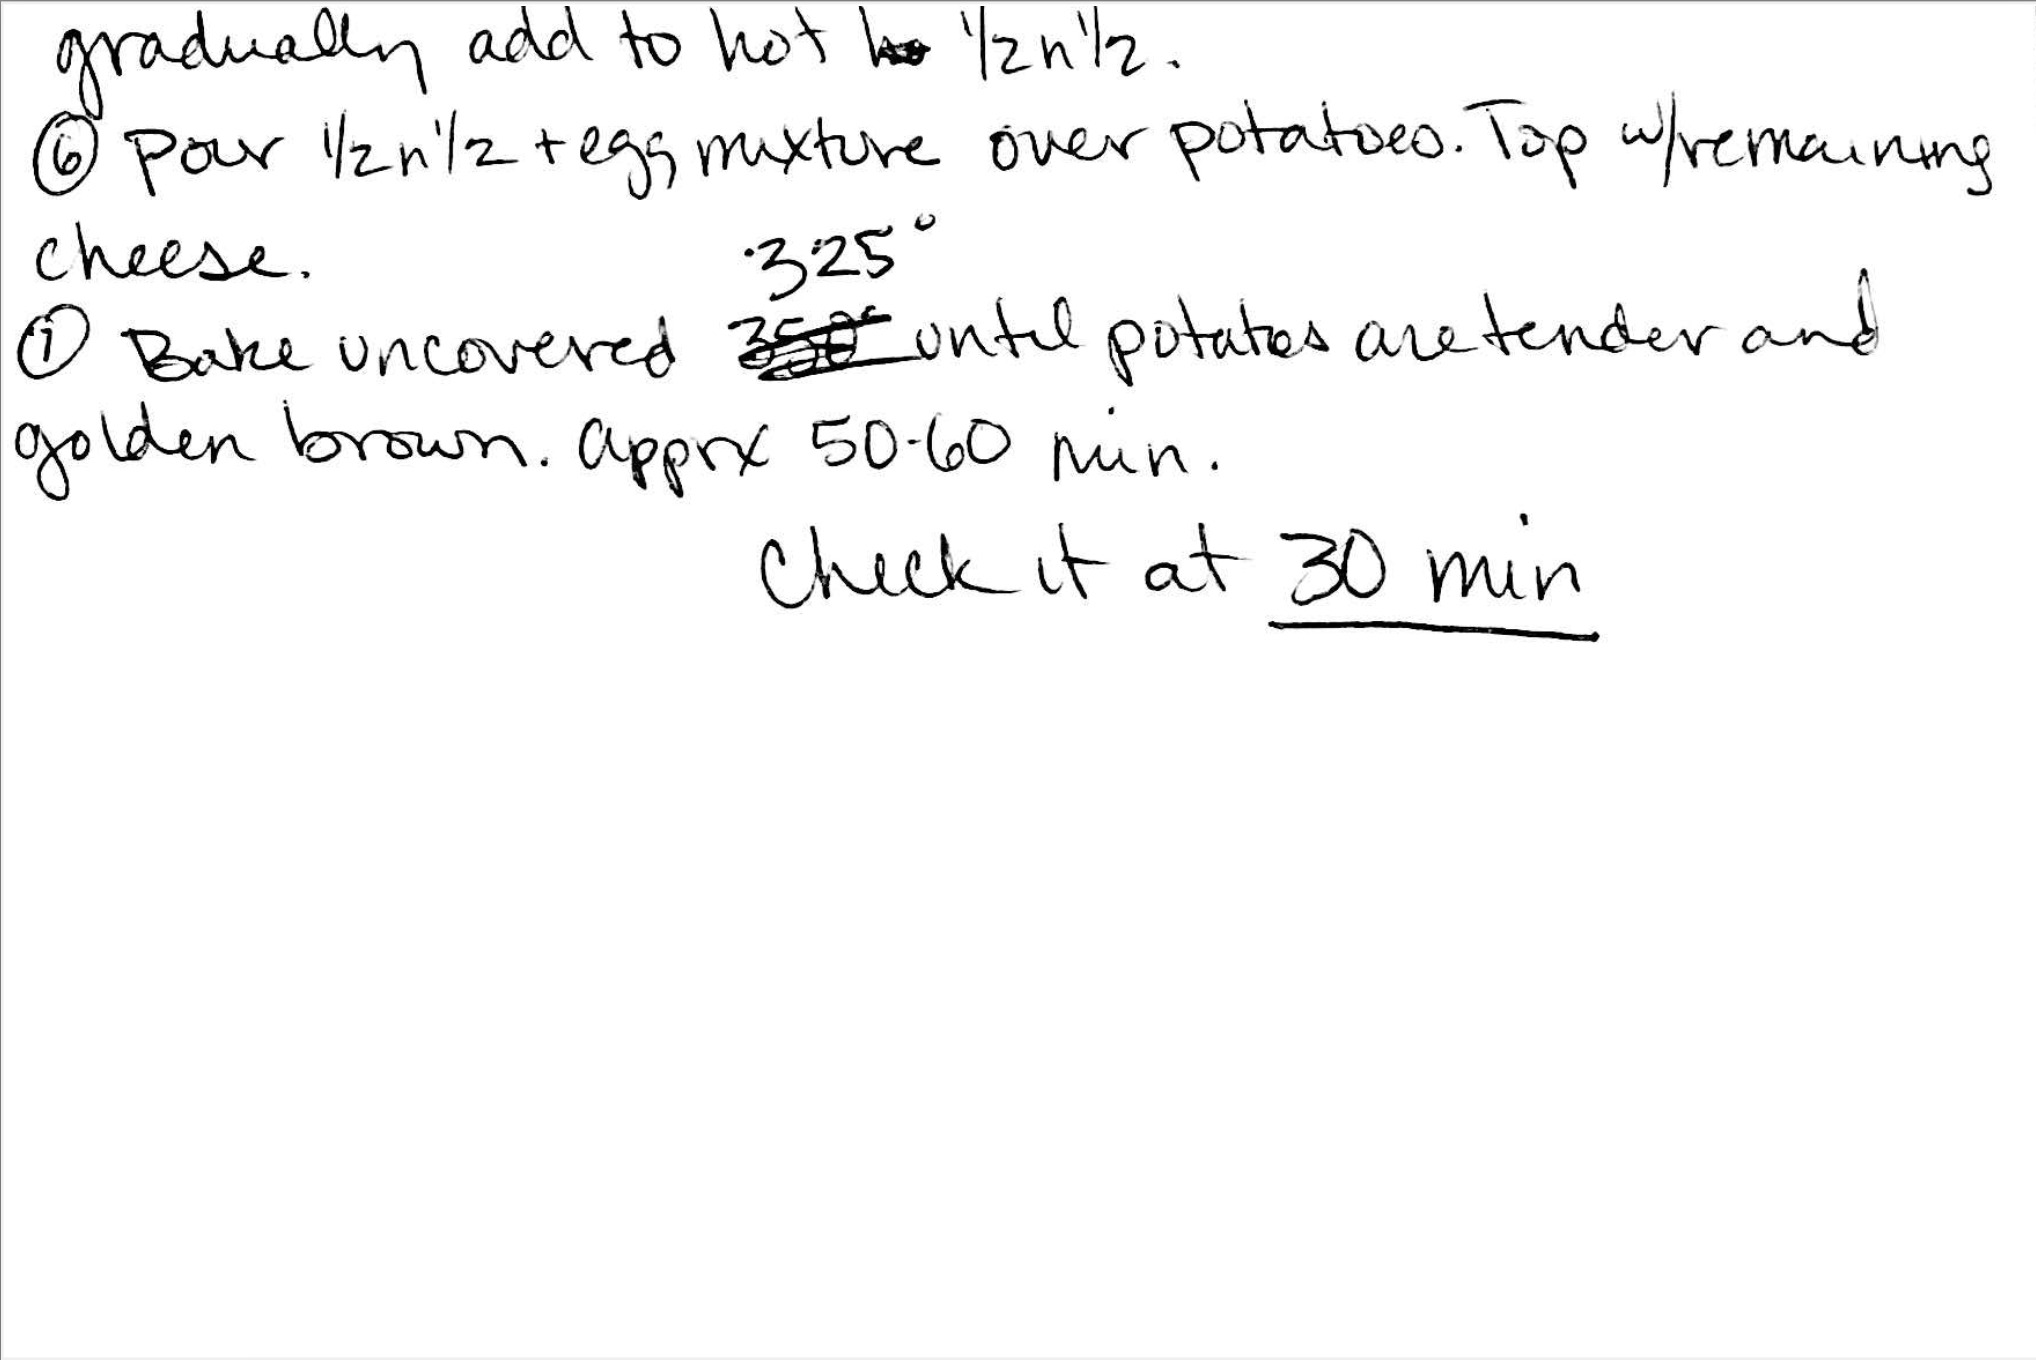 gradually add to hot 1/2 n 1/2.
⑥ Pour 1/2 n 1/2 + egg mixture over potatoes. Top w/remaining
cheese.
325°
⑦ Bake uncovered 350° until potatos are tender and
golden brown. Apprx 50-60 min.
Check it at 30 min